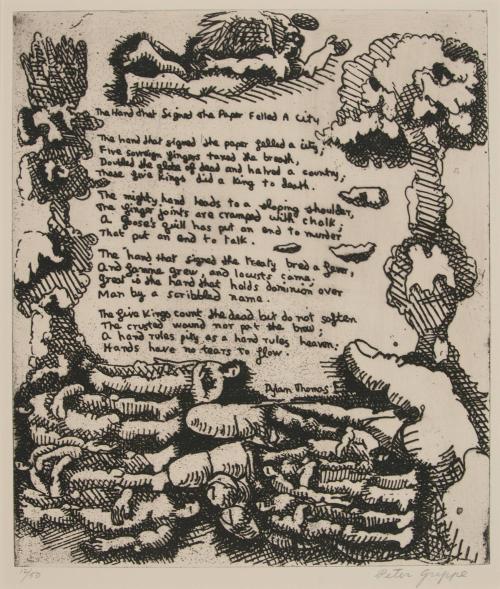 The Hand that Signed the Paper Felled A City
The hand that signed the paper felled a city;
Five sovereign fingers taxed the breath,
Doubled the globe of dead and halved a country;
These five kings did a king to death.
The mighty hand leads to a sloping shoulder,
The finger joints are cramped with chalk;
A goose's quill has put an end to murder
That put an end to talk.
The hand that signed the treaty bred a fever,
And famine grew, and locusts came;
Great is the hand that holds dominion over
Man by a scribbled name.
The five kings count the dead but do not soften
The crusted wound nor pat the brow;
A hand rules pity as a hand rules heaven;
Hands have no tears to flow.
Dylan Thomas
/50 Peter Grippe